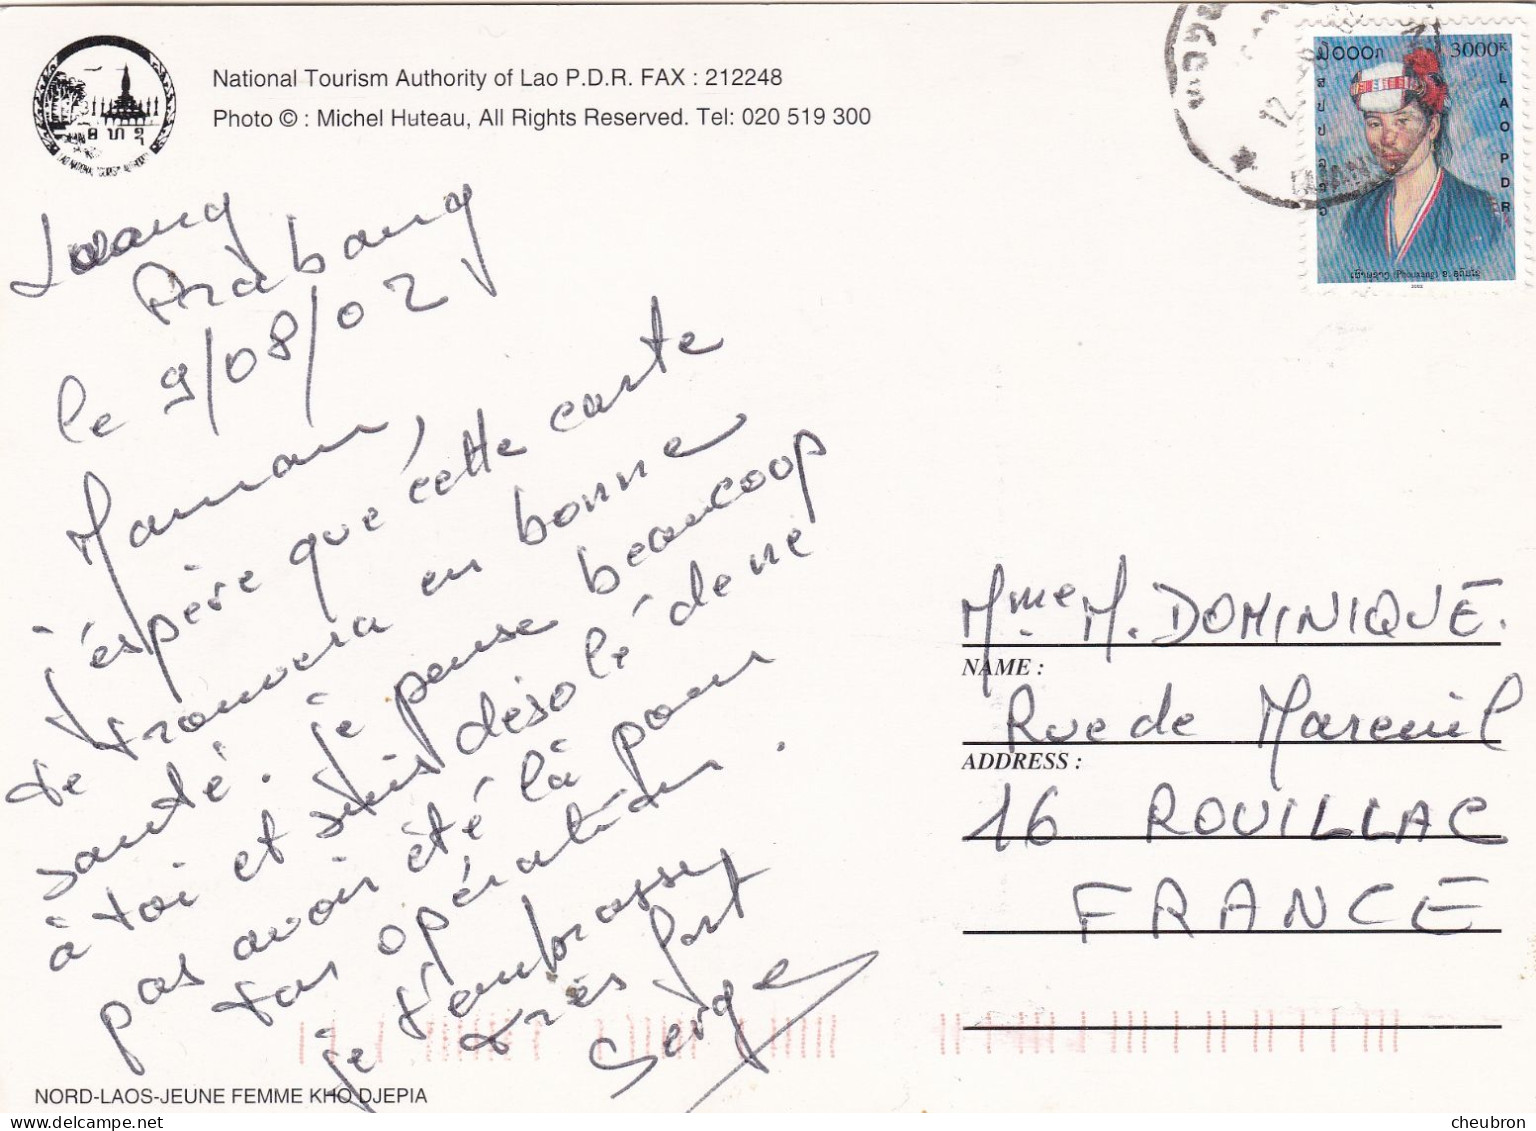 National Tourism Authority of Lao P.D.R. FAX : 212248
Photo © : Michel Huteau, All Rights Reserved. Tel: 020 519 300
LAO NATIONAL TOURISM AUTHORITY
3000
LAO PDR
(Phouxang)
2002
12
Prabang
le 9/08/02
Maman,
j'éspère que cette carte
te trouvera en bonne
santé. je pense beaucoup
à toi et suis désolé de ne
pas avoir été là pour
ton opération.
je t'embrasse
très fort
Serge
Mme M. DOMINIQUE.
NAME :
Rue de Mareuil
ADDRESS :
16 ROUILLAC
FRANCE
NORD-LAOS-JEUNE FEMME KHO DJEPIA
cheubron